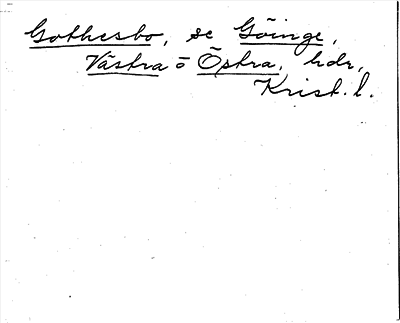 Gothesbo, se Göinge,
Västra o Östra, hdr,
Krist. l.